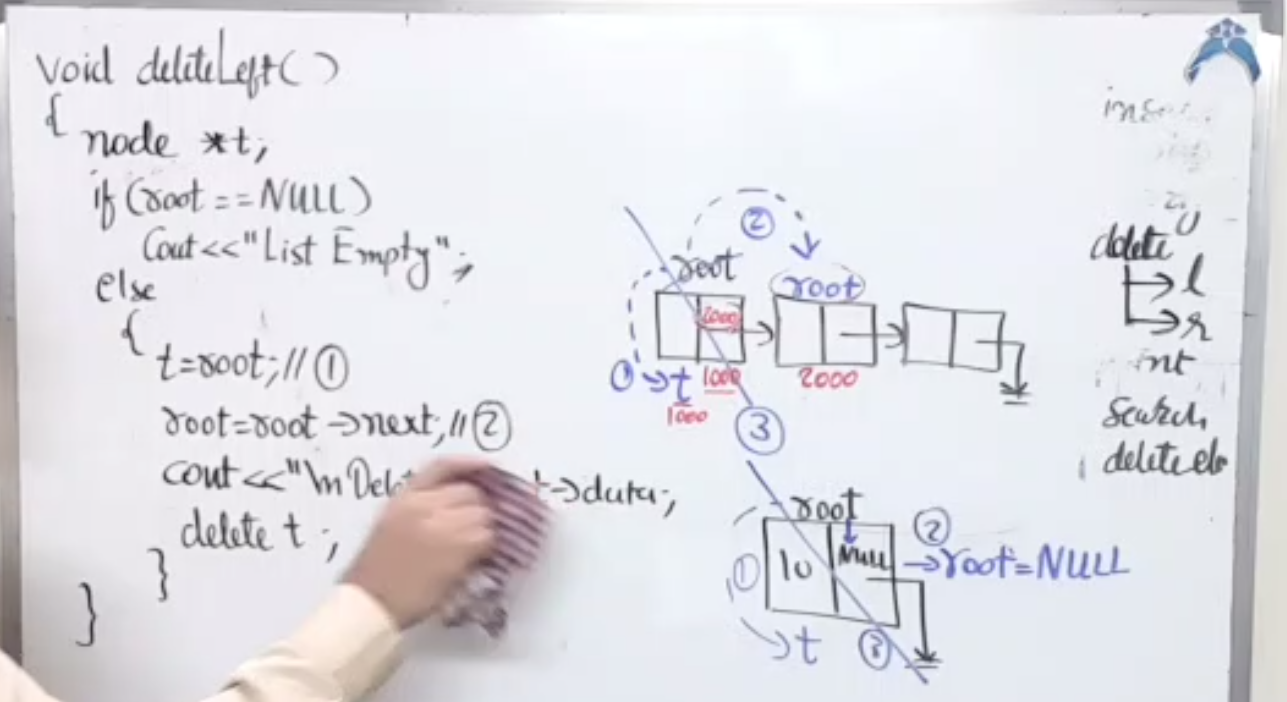 void deleteLeft()
{
node *t;
if (root == NULL)
cout<<"List Empty";
else
{
t=root;//①
root=root->next;//②
cout<<"\n t->data;
delete t;
}
}
②
root
root
2000
①→t
1000
2000
1000
③
root
①
10
NULL
②
→root=NULL
t
③
delete
→l
→r
search
delete